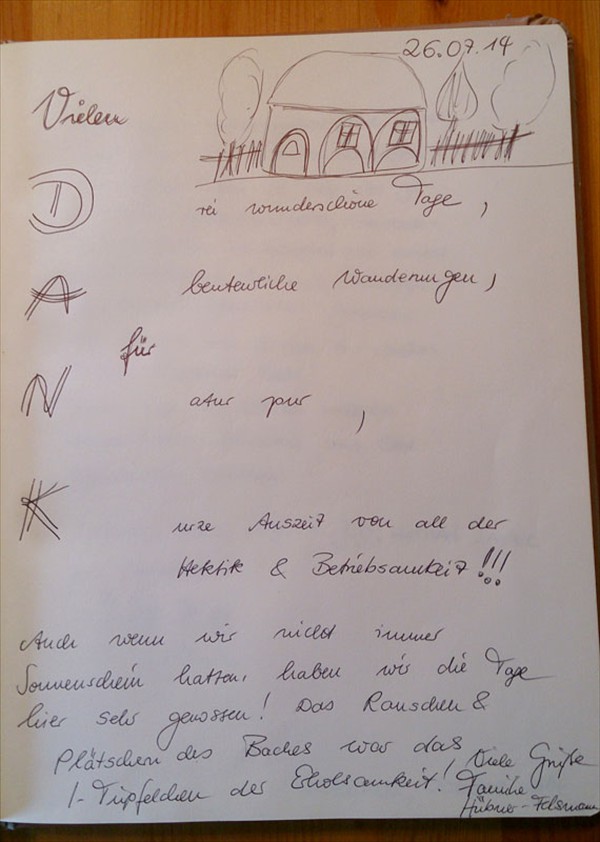 26.07.14
Vielen
D rei wunderschöne Tage,
A benteuerliche Wanderungen,
für
N atur pur,
K urze Auszeit von all der
Hektik & Betriebsamkeit!!!
Auch wenn wir nicht immer
Sonnenschein hatten, haben wir die Tage
hier sehr genossen! Das Rauschen &
Plätschern des Baches war das
I-Tüpfelchen der Erholsamkeit!
Viele Grüße
Familie
Hübner-